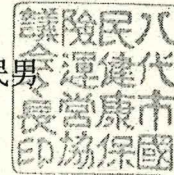 男
八代市國
民健康保
險運營協
議会長印